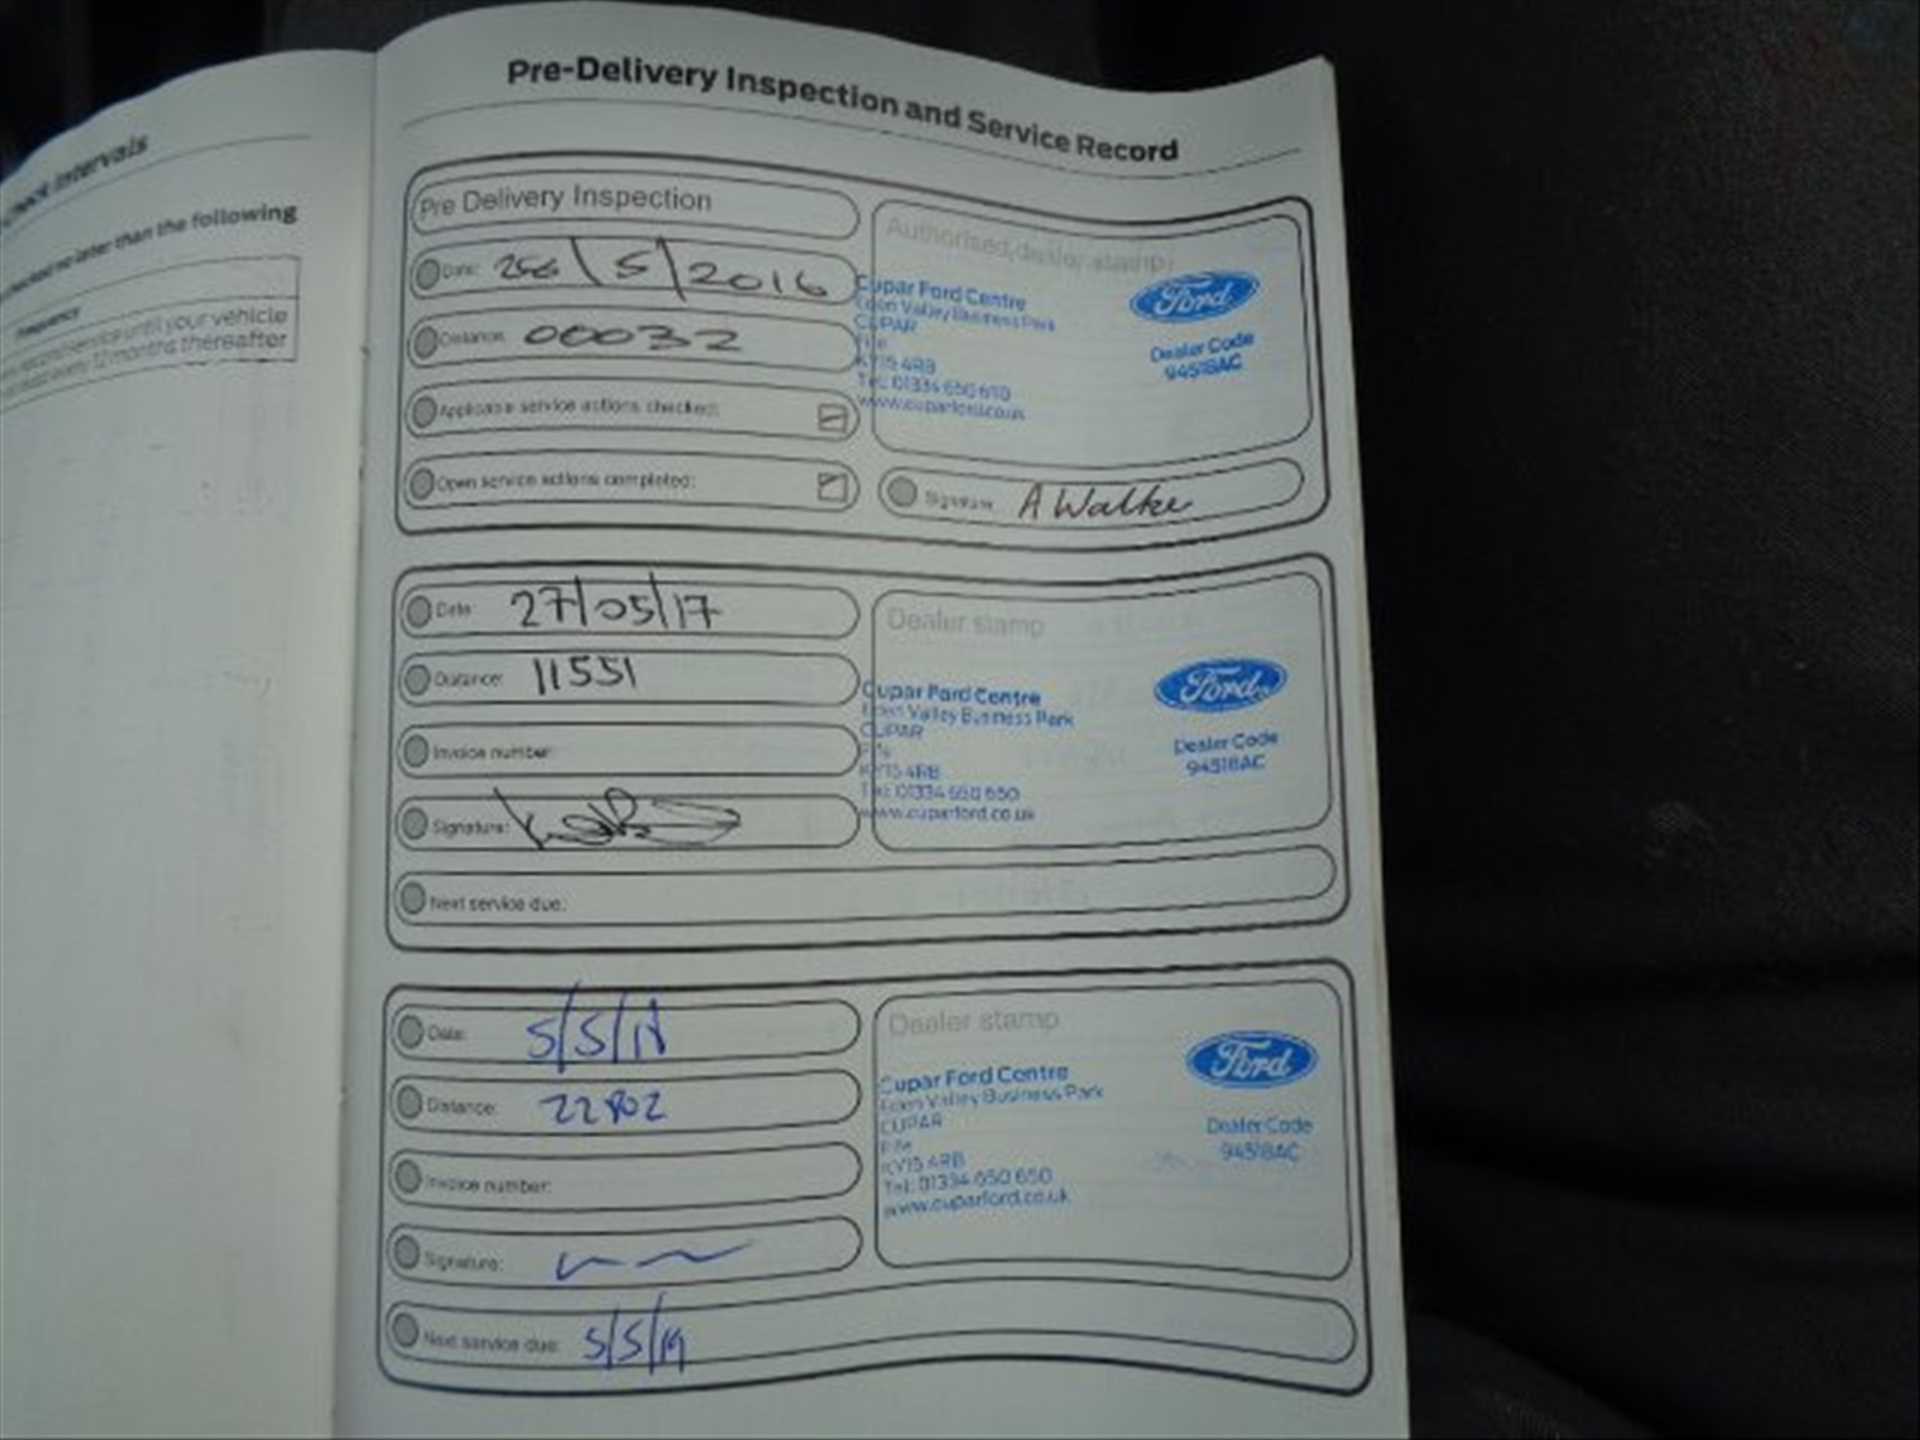 Intervals
than the following
Frequency
service until your vehicle
every 12 months thereafter
Pre-Delivery Inspection and Service Record
Pre Delivery Inspection
Date: \5\2016
Distance: 00032
Applicable service actions checked:
Open service actions completed:
Authorised dealer stamp:
Cupar Ford Centre
Eden Valley Business Park
CUPAR
Fife
KY15 4RB
www.cuparford.co.uk
Ford
Dealer Code
94518AC
Signature: A Walker
Date: 27/05/17
Distance: 11551
Invoice number:
Signature:
Next service due:
Dealer stamp
Cupar Ford Centre
Eden Valley Business Park
CUPAR
Fife
KY15 4RB
Tel: 01334 650 650
www.cuparford.co.uk
Ford
Dealer Code
94518AC
Date: 5/5/18
Distance: 22802
Invoice number:
Signature:
Next service due: 5/5/19
Dealer stamp
Cupar Ford Centre
Eden Valley Business Park
CUPAR
Fife
KY15 4RB
Tel: 01334 650 650
www.cuparford.co.uk
Ford
Dealer Code
94518AC